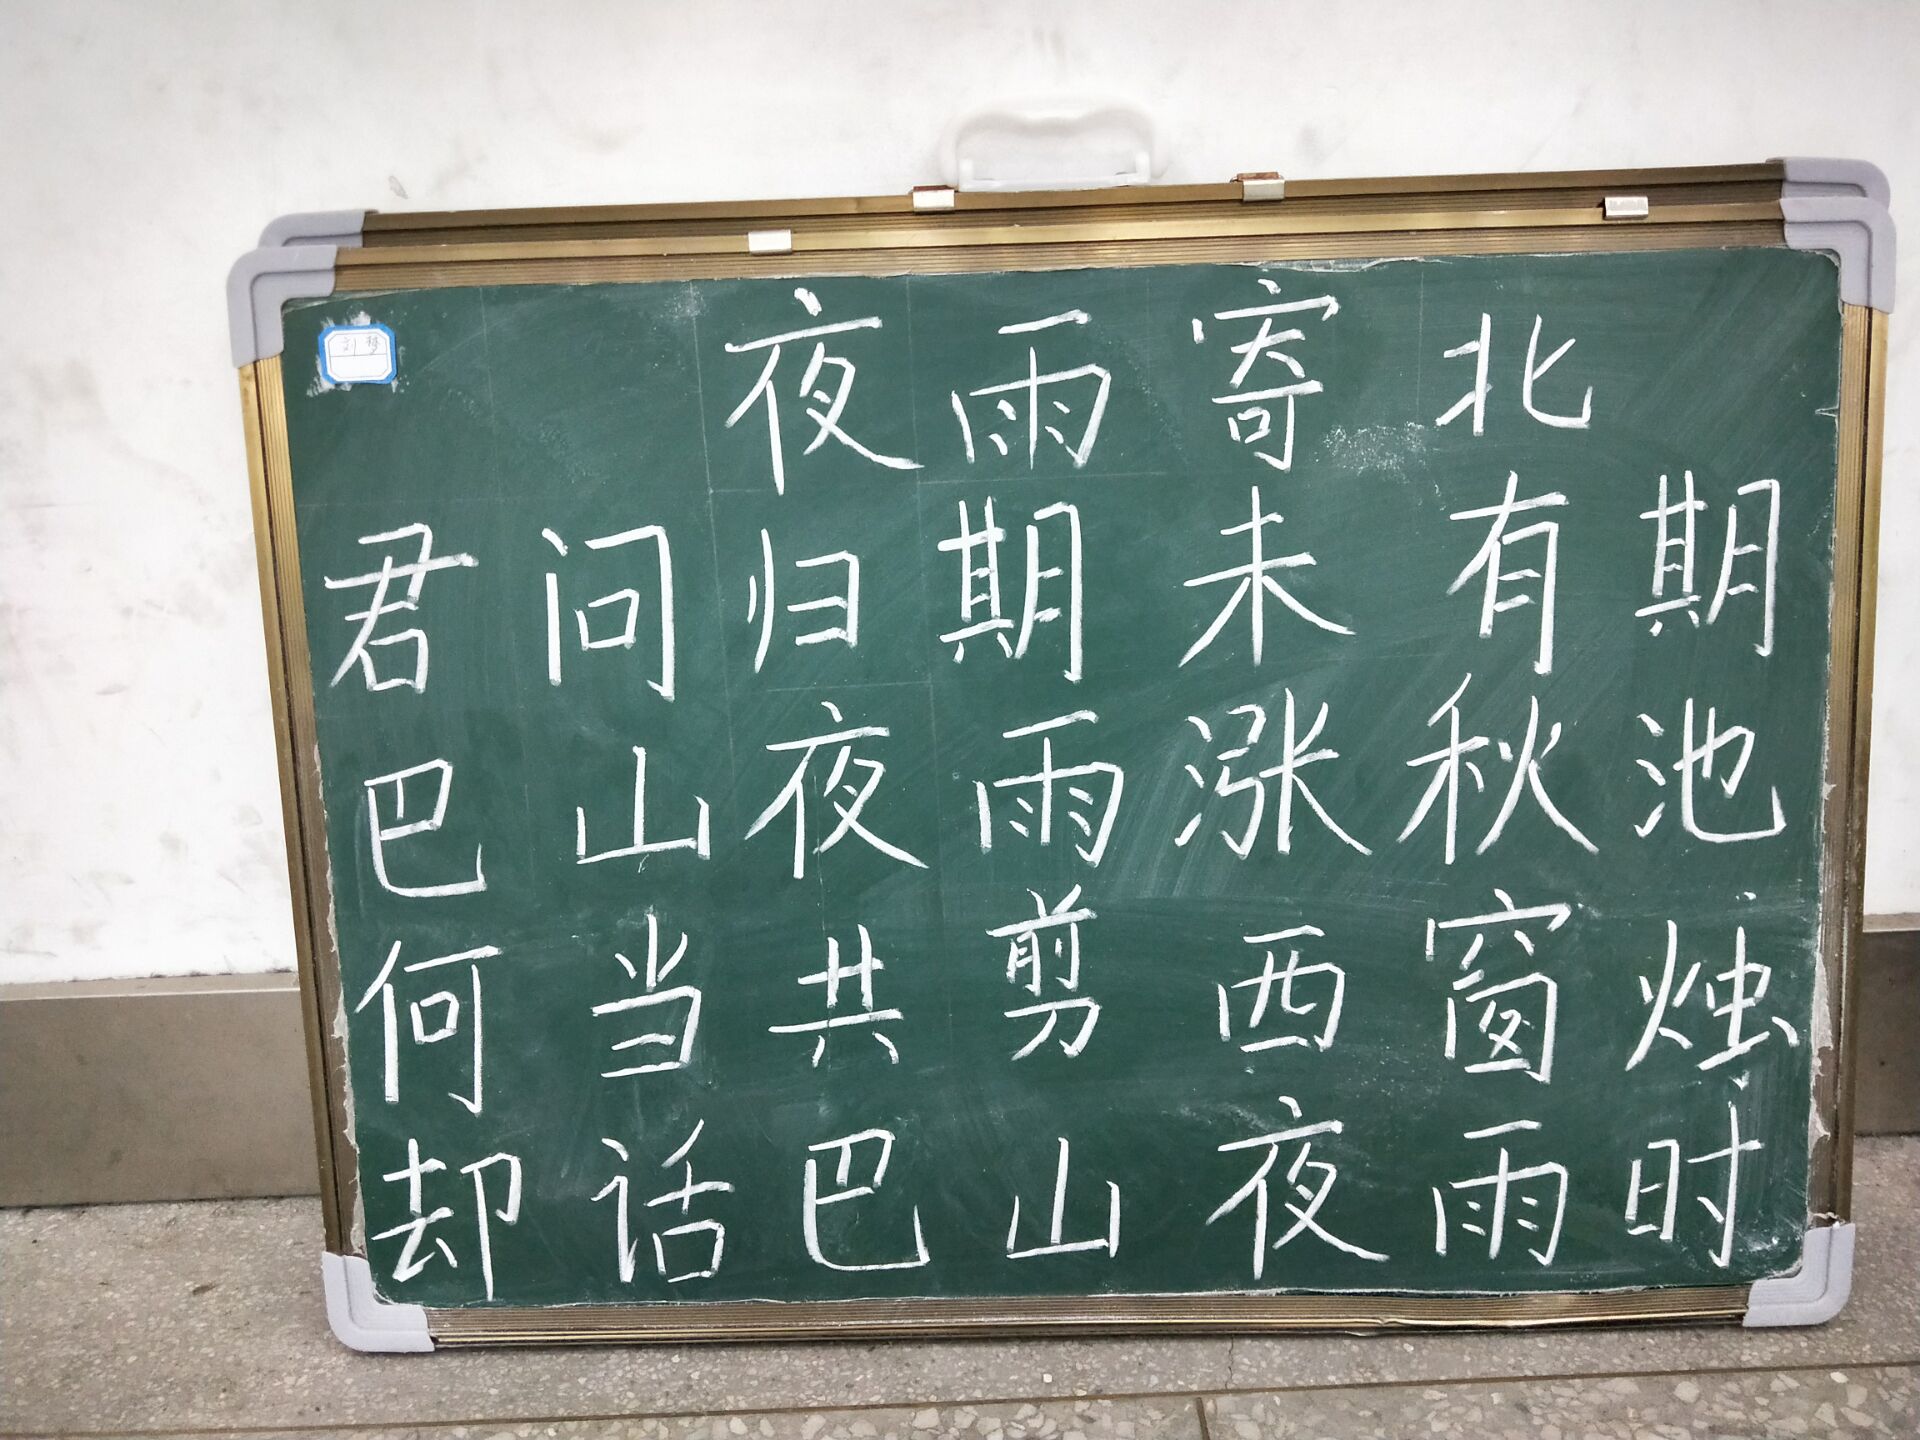 刘梦
夜雨寄北
君问归期未有期
巴山夜雨涨秋池
何当共剪西窗烛
却话巴山夜雨时